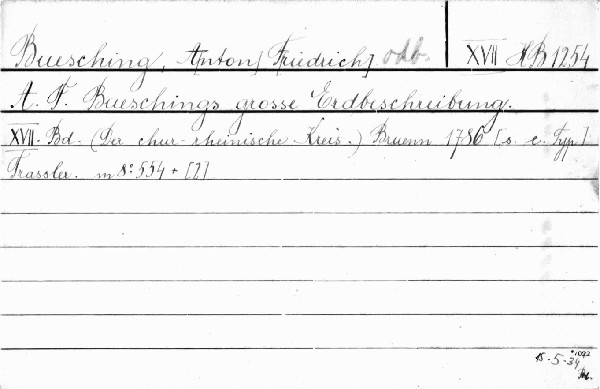 Buesching, Anton[ Friedrich] odb. XVII HB 1254
A. F. Bueschings grosse Erdbeschreibung.
XVII. Bd. (Der chur-rheinische Kreis.) Bruenn 1786 [s. c. Typ.]
Trassler. m 8° 554 + [2]
15-5-34